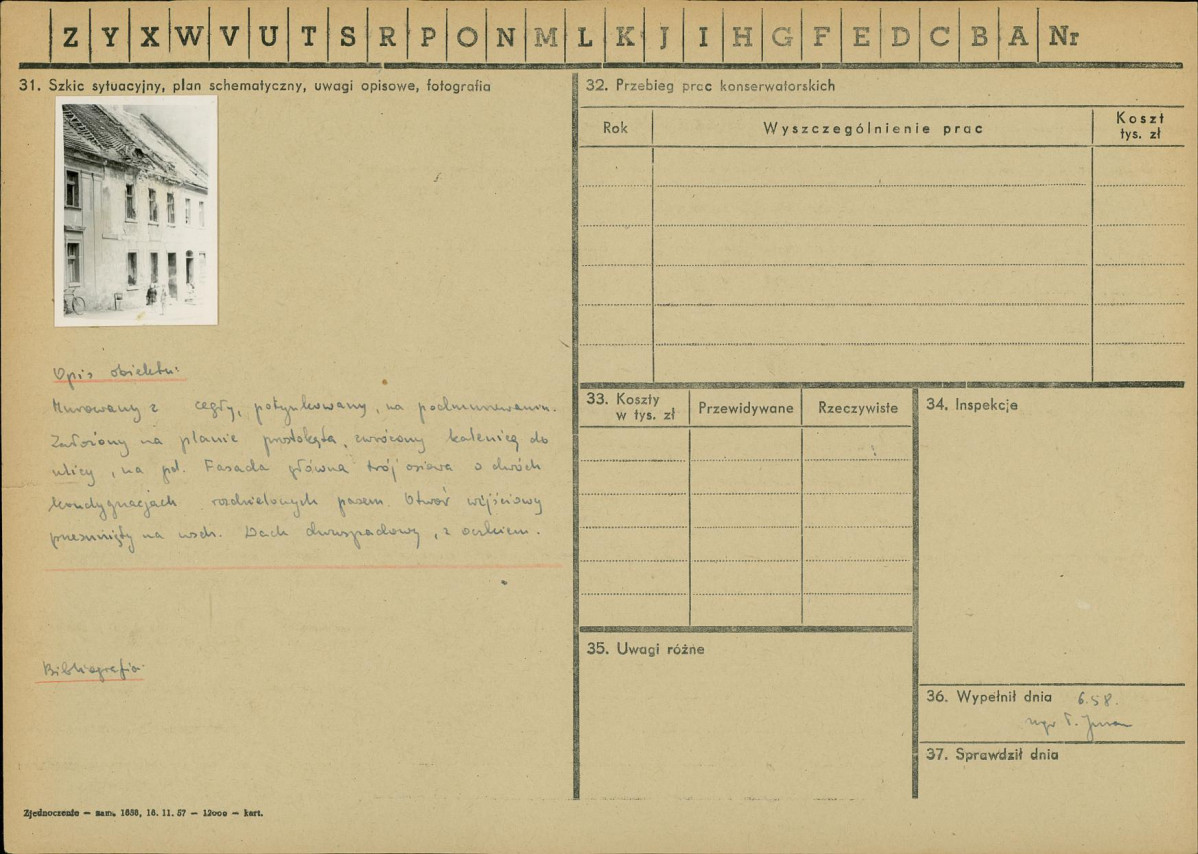 Z Y X W V U T S R P O N M L K J I H G F E D C B A Nr
31. Szkic sytuacyjny, plan schematyczny, uwagi opisowe, fotografia
Opis obiektu:
Murowany z cegły, potynkowany, na podmurowaniu.
Założony na planie prostokąta, zwrócony kalenicą do
ulicy, na pd. Fasada główna trójosiowa o dwóch
kondygnacjach rozdzielonych pasem. Otwór wejściowy
przesunięty na wsch. Dach dwuspadowy, z
Bibliografia
Zjednoczenie — zam. 1838, 18. 11. 57 — 12000 — kart.
32. Przebieg prac konserwatorskich
Rok Wyszczególnienie prac Koszt tys. zł
33. Koszty w tys. zł Przewidywane Rzeczywiste
34. Inspekcje
35. Uwagi różne
36. Wypełnił dnia 6.58.
mgr T.
37. Sprawdził dnia